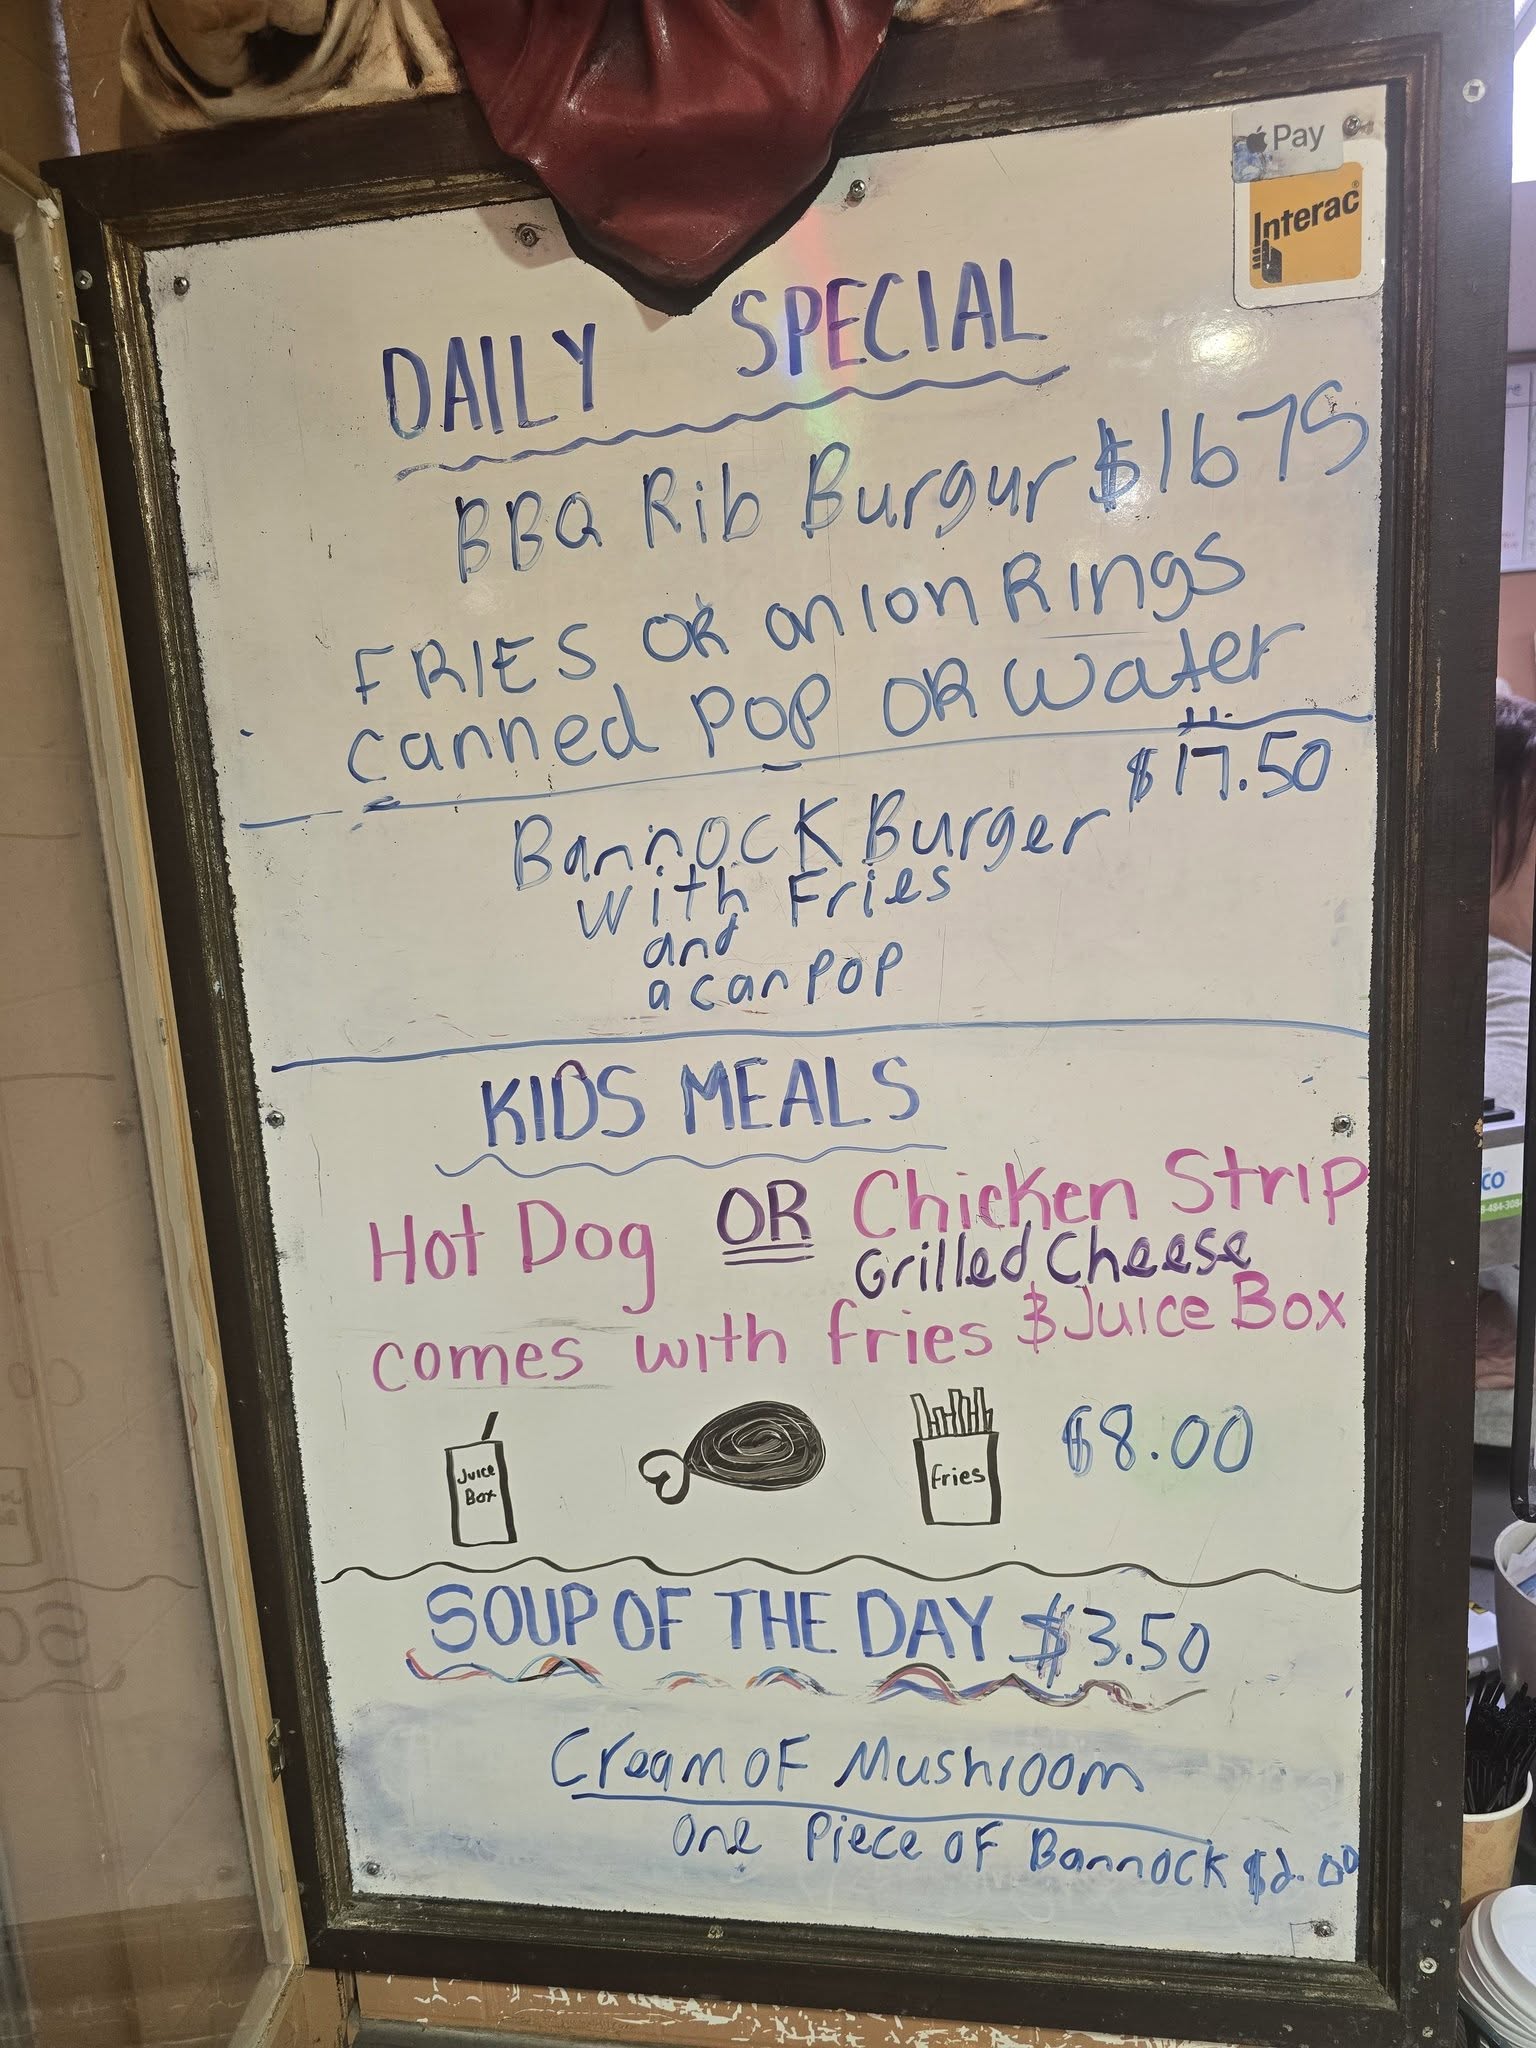 Pay
Interac
DAILY SPECIAL
BBQ Rib Burgur $1675
FRIES OR onion Rings
canned POP OR Water
$17.50
Bannock Burger
with Fries
and
a can pop
KIDS MEALS
Hot Dog OR Chicken Strip
Grilled Cheese
comes with fries & Juice Box
Juice
Box
fries
$8.00
SOUP OF THE DAY $3.50
Cream of Mushroom
one Piece of Bannock $2.00